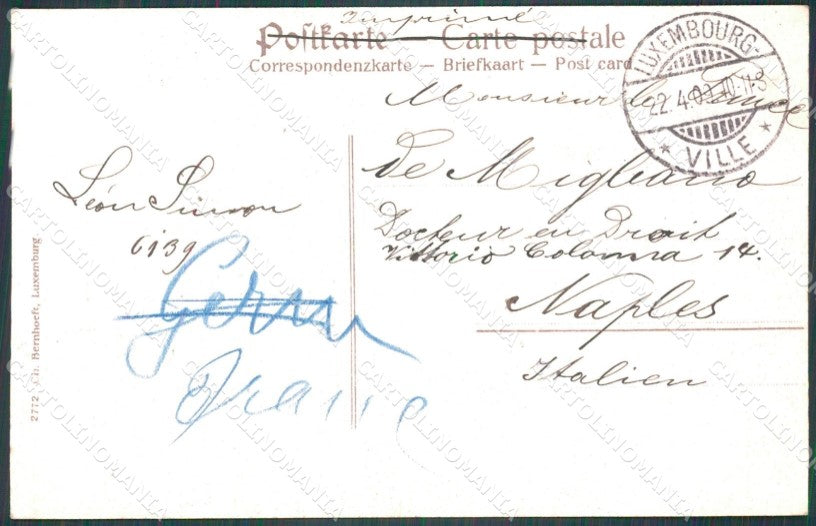 Imprimé
Postkarte — Carte postale
Correspondenzkarte — Briefkaart — Post card
LUXEMBOURG-
22.4.09 10-11S
★ VILLE ★
Monsieur le Prince
de Migliano
Docteur en Droit
Vittorio Colonna 14.
Naples
Italien
Léon Simon
6139
2772 Ch. Bernhoeft, Luxemburg
CARTOLINOMANIA